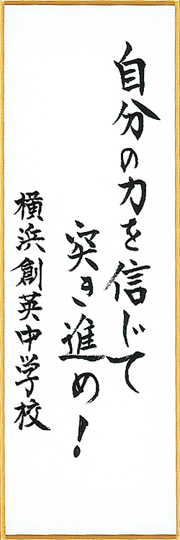 自分の力を信じて
突き進め!
横浜創英中学校